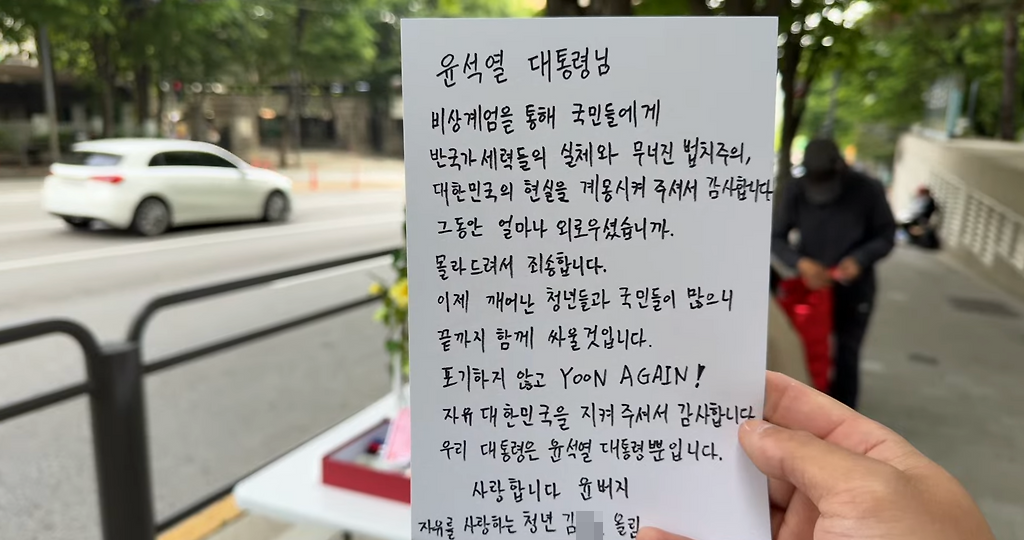 윤석열 대통령님
비상계엄을 통해 국민들에게
반국가세력들의 실체와 무너진 법치주의,
대한민국의 현실을 계몽시켜 주셔서 감사합니다
그동안 얼마나 외로우셨습니까.
몰라드려서 죄송합니다.
이제 깨어난 청년들과 국민들이 많으니
끝까지 함께 싸울것입니다.
포기하지 않고 YOON AGAIN!
자유대한민국을 지켜주셔서 감사합니다
우리 대통령은 윤석열 대통령뿐입니다.
사랑합니다 윤버지
자유를 사랑하는 청년 김 올림